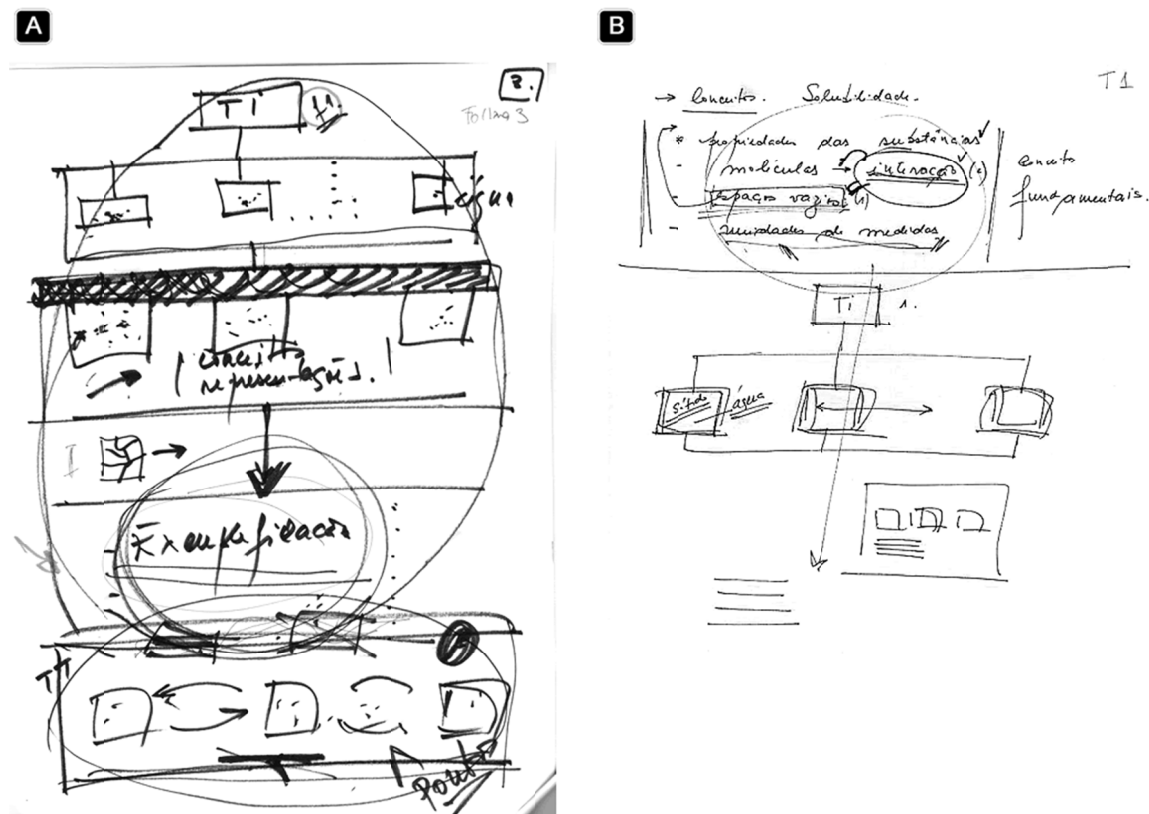 A
3.
Folha 3
T1
água
conceito
representações.
I
Exemplificação
Ponto
B
T1
→ Conceitos. Solubilidade.
* propriedades das substâncias ✓
- moléculas → interação
- espaços vazios (1)
- unidades de medidas
conceito
fundamentais.
Ti 1.
água